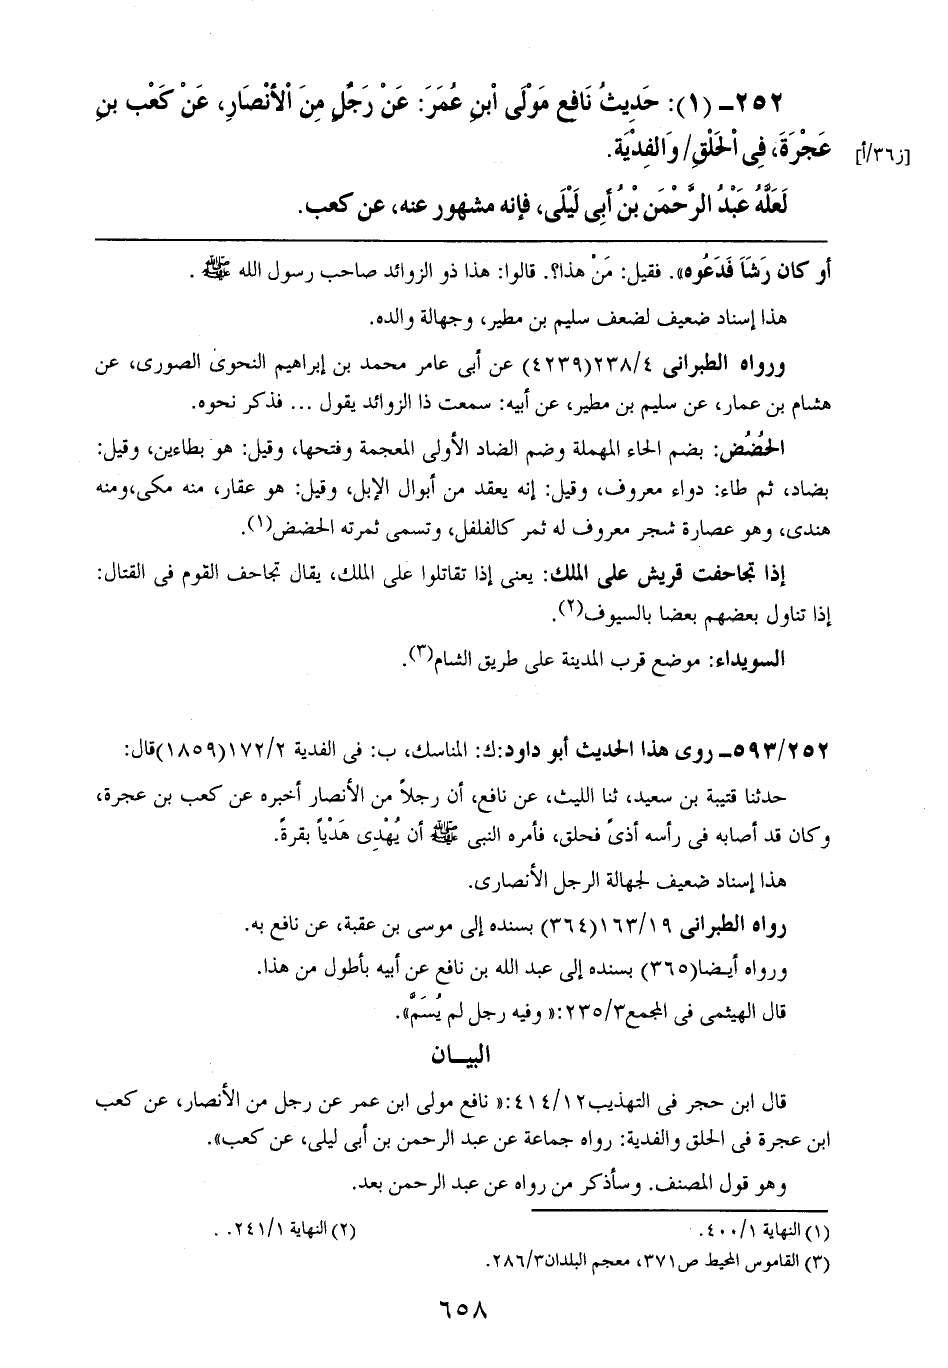 ٢٥٢ـ (١): حَدِيثُ نَافِعٍ مَوْلَى ابْنِ عُمَرَ: عَنْ رَجُلٍ مِنَ الْأَنْصَارِ، عَنْ كَعْبِ بنِ
عَجْرَةَ، فِى الْحَلْقِ/ وَالفِدْيَةِ. [ز٣٦/أ]
لَعَلَّهُ عَبْدُ الرَّحْمَنِ بْنُ أَبِى لَيْلَى، فإنه مشهور عنه، عن كعب.
أو كان رَشَاً فَدَعُوه». فقيل: مَنْ هذا؟. قالوا: هذا ذو الزوائد صاحب رسول الله ﷺ .
هذا إسناد ضعيف لضعف سليم بن مطير، وجهالة والده.
ورواه الطبرانى ٢٣٨/٤(٤٢٣٩) عن أبى عامر محمد بن إبراهيم النحوى الصورى، عن
هشام بن عمار، عن سليم بن مطير، عن أبيه: سمعت ذا الزوائد يقول ... فذكر نحوه.
الحُضُض: بضم الحاء المهملة وضم الضاد الأولى المعجمة وفتحها، وقيل: هو بطاءين، وقيل:
بضاد، ثم طاء: دواء معروف، وقيل: إنه يعقد من أبوال الإبل، وقيل: هو عقار، منه مكى،ومنه
هندى، وهو عصارة شجر معروف له ثمر كالفلفل، وتسمى ثمرته الحضض(١).
إذا تجاحفت قريش على الملك: يعنى إذا تقاتلوا على الملك، يقال تجاحف القوم فى القتال:
إذا تناول بعضهم بعضا بالسيوف(٢).
السويداء: موضع قرب المدينة على طريق الشام(٣).
٥٩٣/٢٥٢ـ روى هذا الحديث أبو داود:ك: المناسك، ب: فى الفدية ١٧٢/٢(١٨٥٩)قال:
حدثنا قتيبة بن سعيد، ثنا الليث، عن نافع، أن رجلاً من الأنصار أخبره عن كعب بن عجرة،
وكان قد أصابه فى رأسه أذىً فحلق، فأمره النبى ﷺ أن يُهْدِى هَدْياً بقرةً.
هذا إسناد ضعيف لجهالة الرجل الأنصارى.
رواه الطبرانى ١٦٣/١٩(٣٦٤) بسنده إلى موسى بن عقبة، عن نافع به.
ورواه أيضا(٣٦٥) بسنده إلى عبد الله بن نافع عن أبيه بأطول من هذا.
قال الهيثمى فى المجمع٢٣٥/٣:« وفيه رجل لم يُسَمَّ».
البيـان
قال ابن حجر فى التهذيب٤١٤/١٢:« نافع مولى ابن عمر عن رجل من الأنصار، عن كعب
ابن عجرة فى الحلق والفدية: رواه جماعة عن عبد الرحمن بن أبى ليلى، عن كعب».
وهو قول المصنف. وسأذكر من رواه عن عبد الرحمن بعد.
(١) النهاية ٤٠٠/١. (٢) النهاية ٢٤١/١. .
(٣) القاموس المحيط ص٣٧١، معجم البلدان٢٨٦/٣.
٦٥٨